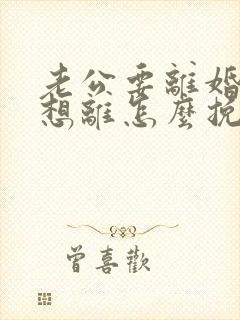 老公要離婚
想離怎麼挽
曾喜歡